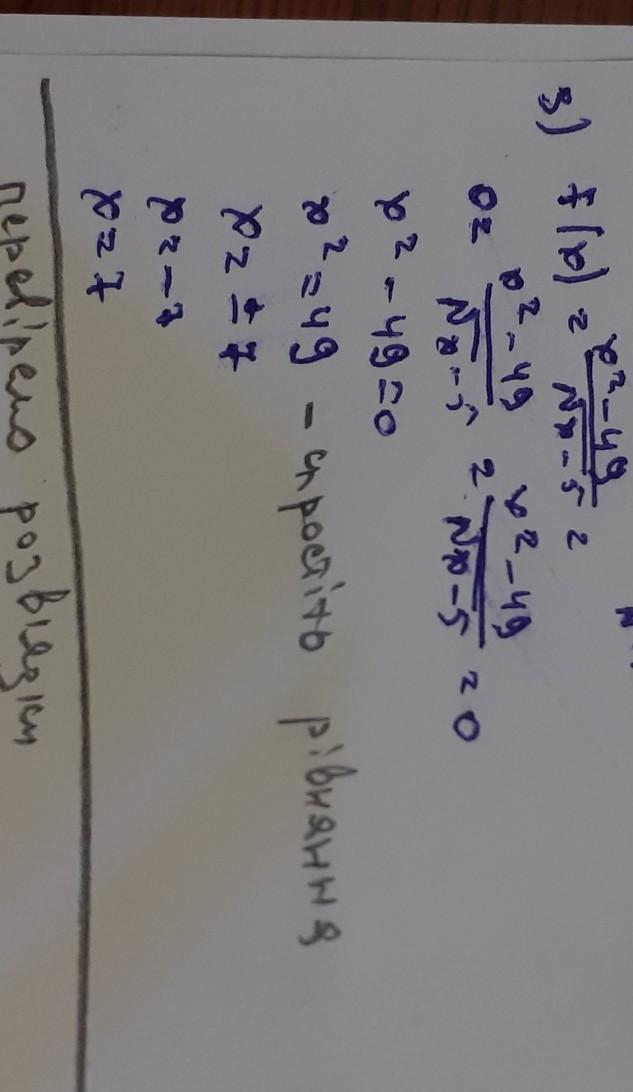 3) f(x) = x² - 49 / √x - 5 =
0 = x² - 49 / √x - 5 = x² - 49 / √x - 5 = 0
x² - 49 = 0
x² = 49 - спростіть рівняння
x = ± 7
x = -7
x = 7
перевіремо розвʼязки